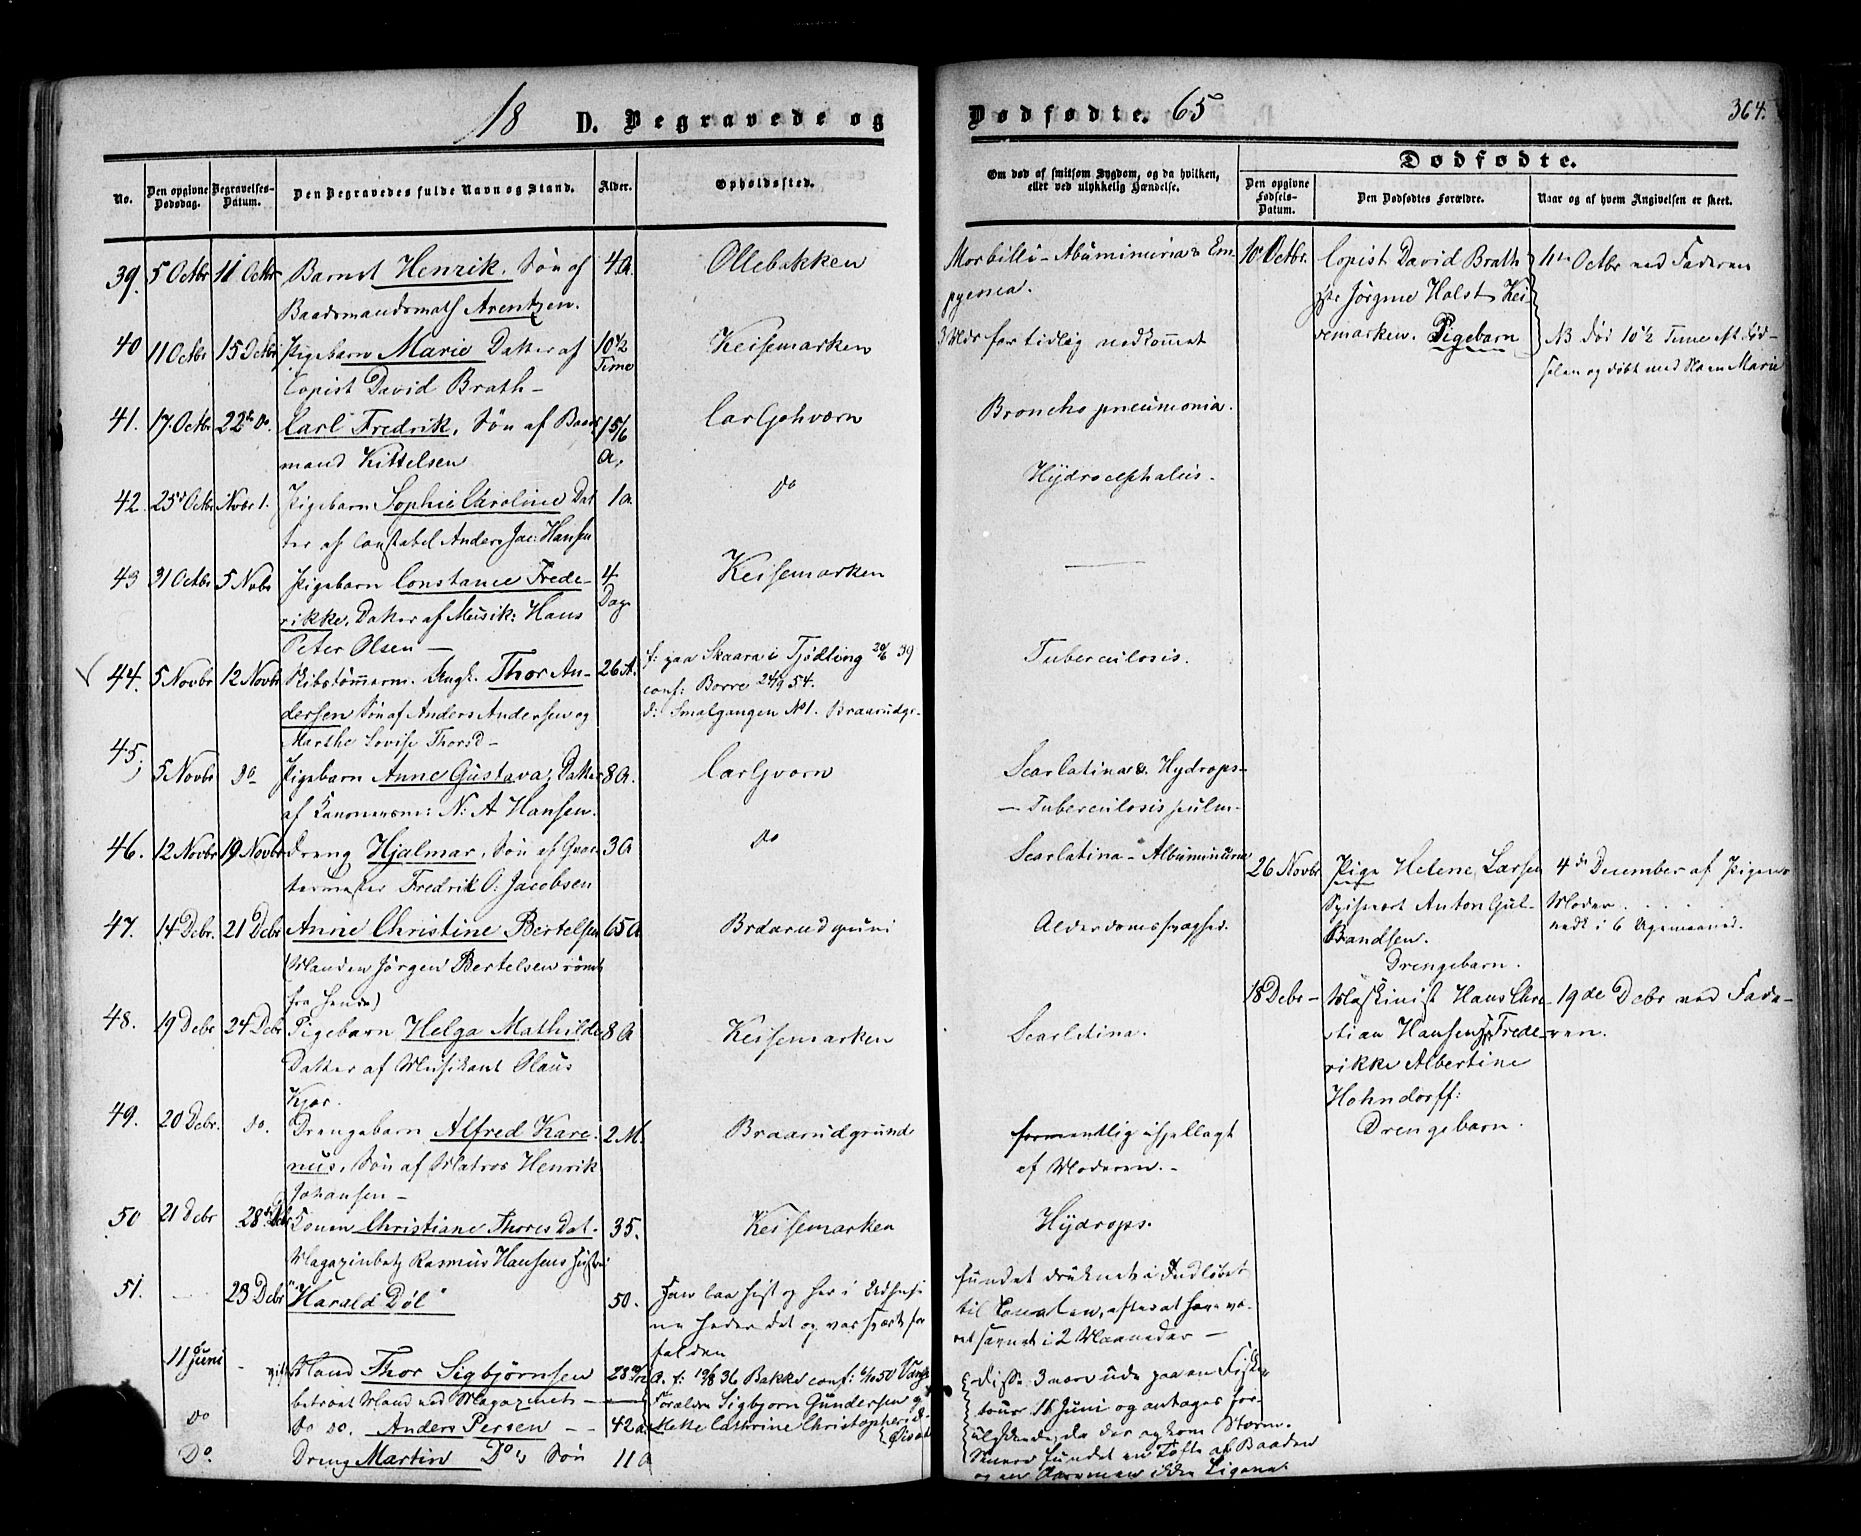 18 D. Begravede og
No.
Den opgivne Dødsdag.
Begravelses-Datum.
Den Begravedes fulde Navn og Stand.
Alder.
Opholdssted.
39. 5 Octbr 11 Octbr Barnet Henrik, Søn af 4 a. Ollebakken
Baadsmandsmath Arentzen.
40 11 Octbr 15 Octbr Pigebarn Marie Datter af 10 1/2 Time Keisemarken
Copist David Brath –
41. 17. Octbr 22de do. Carl Fredrik, Søn af Baads 1 5/6 a. Carljohvorn
mand Kittelsen
42. 25de Octbr Novbr 1. Pigebarn Sophie Caroline Dat 1 a. do
ter af Constabel Anders Jac: Hansen
43 31 Octbr 5 Novbr Pigebarn Constance Frede- 4 Dage Keisemarken
rikke, Datter af Musik: Hans
Peter Olsen –
44. 5 Novbr 12 Novbr Skibstømmerm. Ungk. Thor An- 26 A. f: paa Skaara i Tjødling 20/6 39
dersen Søn af Anders Andersen og conf: Borre 24/9 54.
Marthe Lovise Thorsd – d: Smalgangen No 1. Braarudgr.
45, 5 Novbr do Pigebarn Anne Gustava, Datter 8 a. Carljvorn
af Kanoneerm: N: A Hansen.
46. 12 Novbr 19 Novbr Dreng Hjalmar, Søn af Qvar 3 a do
termester Fredrik O: Jacobsen
47. 14 Debr. 21 Debr Anne Christine Bertelsen 65 a Braarudgruni
(Manden Jørgen Bertelsen rømt
fra hende)
48. 19 Debr 24 Debr Pigebarn Helga Mathilde 8 a Keisemarken
Datter af Musikant Olaus
Kjær.
49. 20 Debr. do. Drengebarn Alfred Kare- 2 M. Braarudgrund
nus, Søn af Matros Henrik
Johansen –
50 21 Debr 28de Debr Konen Christiane Thores Dat- 35. Keisemarken
Magazinbetj. Rasmus Hansens Hustru
51. 23 Debr "Harald Døl" 50. Han laa hist og her i
og var svært for
falden
11 Juni Mand Thor Sigbjørnsen 28 a. f: 19/8 36 Bakke conf: 50
betroet Mand ved Magazinet – Forældre Sigbjørn Gundersen og
do do do. Anders Persen – – 42 a. Mette Cathrine Christophersd-
Do. Dreng Martin Do's Søn 11 a
Dødfødte. 65
364.
Om død af smitsom Sygdom, og da hvilken, eller ved ulykkelig Hændelse.
Dødfødte.
Den opgivne Fødsels-Datum.
Den Dødfødtes Forældre.
Naar og af hvem Angivelsen er skeet.
Morbilli – Abuminuria & Em
pyema.
3 Mdr for tidlig nedkommet
Broncho pneumonia.
Hydrocephalus.
Tuberculosis.
Scarlatina &. Hydrops –
– Tuberculosis pulm –
Scarlatina – Albuminuria
Alderdomssvaghed.
Scarlatina.
formentlig ihjellagt
af Moderen. –
Hydrops.
fundet druknet i Indløbet
til Canalen, efter at have væ-
ret savnet i 2 Maaneder –
Disse 3 vare ude paa en Fiske
tour 11 Juni og antages for-
ulykkede, da der opkom Storm.
Senere fundet en Tofte af Baaden
og en Aare men ikke Ligene
10 Octbr. Copist David Brath 11te Octbr ved Faderen
Jørgine Holst, Kei
semarken. Pigebarn NB død 10 1/2 Time eft. Fød-
selen og døbt med Navn Marie
26 Novbr Pige Helene Larsen 4de December af Pigens
Anton Gul- Moder.
Brandsen. nedk i 6 Ugemaaned.
Drengebarn.
18 Debr – Maskinist Hans Chri – 19de Debr ved Fade-
stian Hansen Frede- ren.
rikke Albertine
Hohndorff:
Drengebarn.